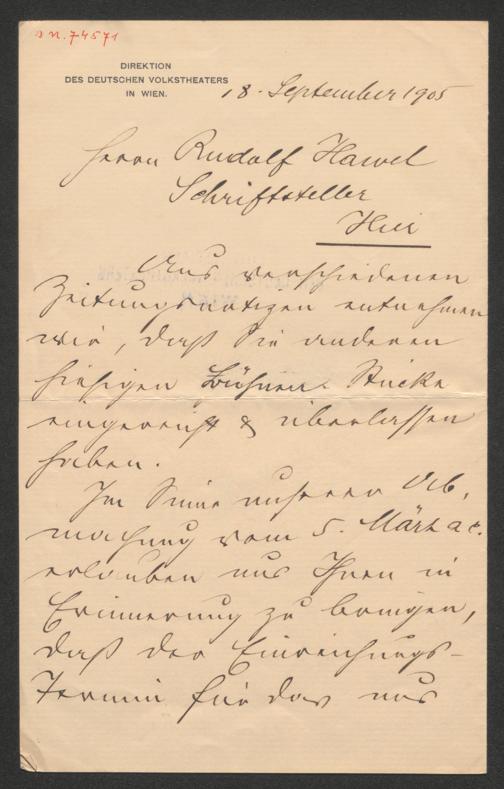 J.N. 74571
DIREKTION
DES DEUTSCHEN VOLKSTHEATERS
IN WIEN.
18. September 1905
Herrn Rudolf Hawel
Schriftsteller
Hier
Aus verschiedenen
Zeitungsnotizen entnehmen
wir, daß Sie anderen
hiesigen Bühnen Stücke
eingereicht & überlassen
haben.
Im Sinne unserer Ab,
machung vom 5. März a c.
erlauben uns Ihnen in
Erinnerung zu bringen,
daß der Einreichungs-
Termin für das uns